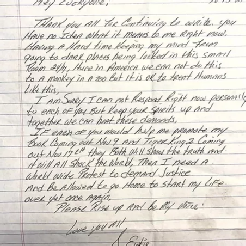 Thank you all for continuing to write. you
have no Idea what it means to me right now.
Having a Hard time keeping my mind from
going to dark places being locked in this small
Room 24/7, there in America we can not do this
to a monkey in a zoo but it is ok to treat Humans
like this.
I am Sorry I can not Respond Right now personally
to each of you But keep your Spirits up and
together we can
If each of you would help me promote my
Book Coming out Nov 9 and Tiger King 2 Coming
out Nov 17th they Both will show the truth and
it will All Shock the world. Then I need a
world wide Protest to demand Justice
And be Allowed to go home to start my life
over yet once again.
Please Rise up and Be My voice.
Love you All